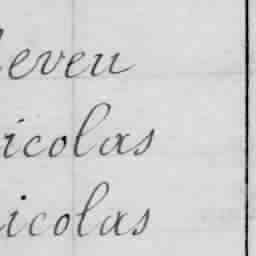 eveu
icolas
icolas